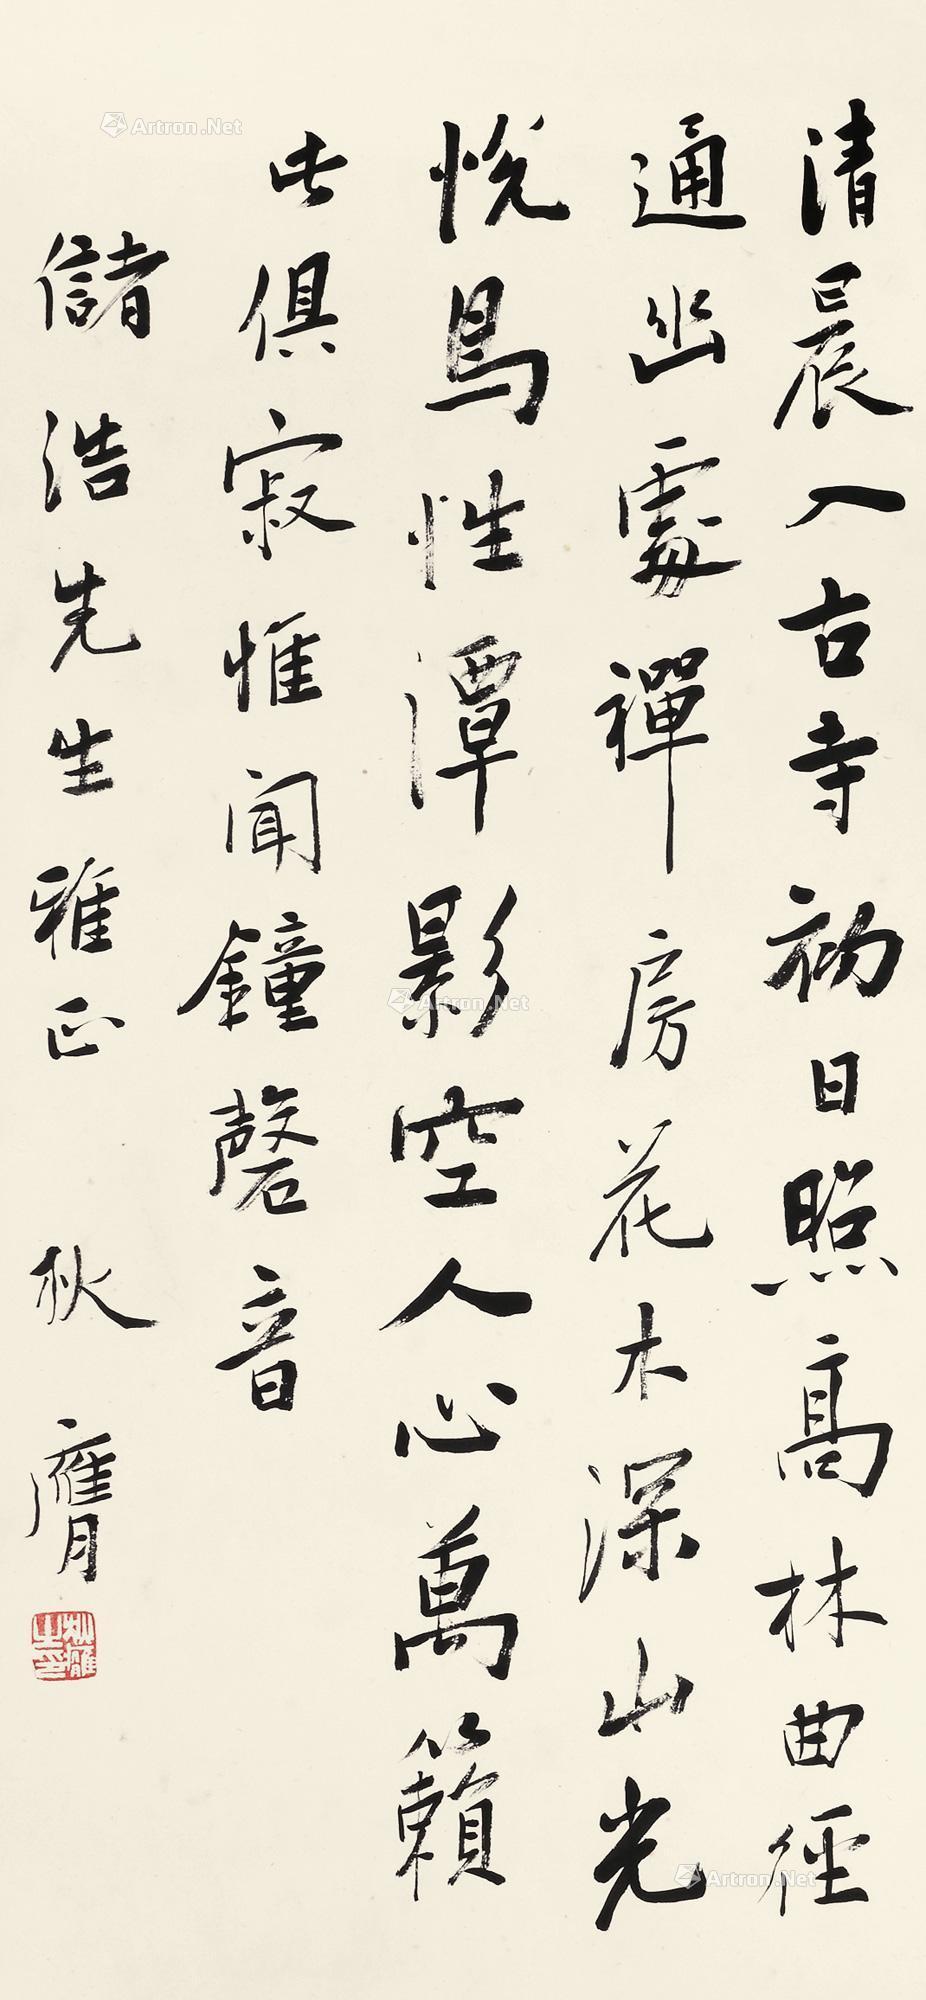 清晨入古寺初日照高林曲径
通幽處禪房花木深山光
悦鳥性潭影空人心萬籟
此俱寂惟聞鐘磬音
儲浩先生雅正 秋膺
Artron.Net
Artron.Net
Artron.Net